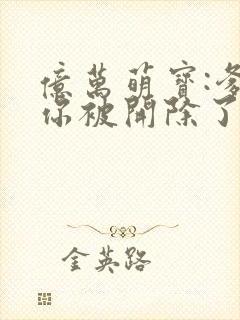 億萬萌寶:爹
你被開除了
金英路